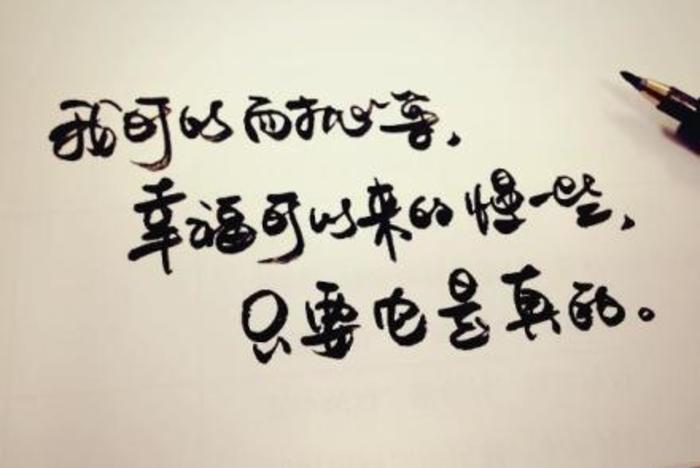 我可以耐心等，
幸福可以来的慢一些，
只要它是真的。